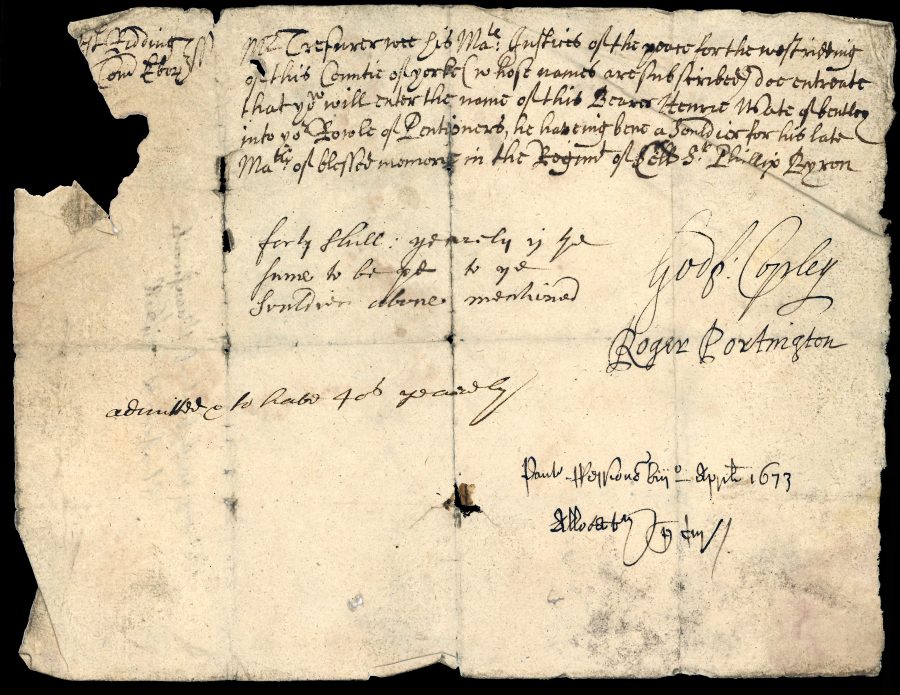 st Ridding
Com Ebor ss
Mr Tresurer wee his Mats Justices of the peace for the west ridding
of this Countie of yorke (whose names are subscribed) doe entreate
that yow will enter the name of this Bearer Henrie Wate of bentley
into yor Rowle of Pentioners, he haveing bene a Souldier for his late
Matie of blessed memorie in the Regimt of Coll Sr Phillip Byron
forty Shill: yearely is ye
sume to be pd to ye
Souldier above mentined
Godf: Copley
Roger Portington
admitted to have 40s yearely
Sessions April 1673